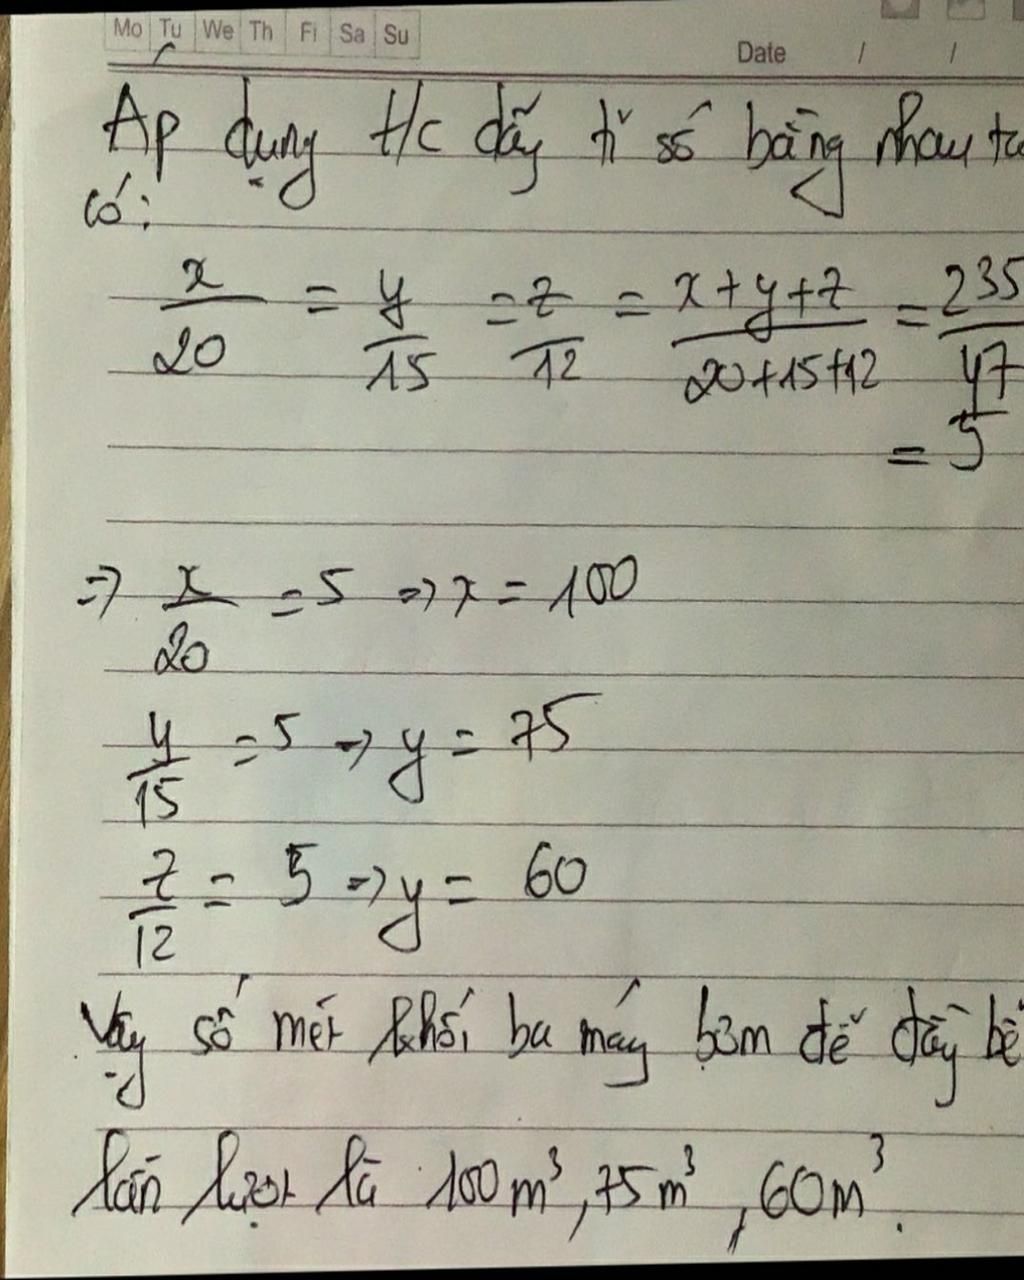 Mo Tu We Th Fi Sa Su
Date / /
Áp dụng t/c dãy tỉ số bằng nhau ta
có:
x/20 = y/15 = z/12 = x+y+z/20+15+12 = 235/47
= 5
=> x/20 = 5 => x = 100
y/15 = 5 => y = 75
z/12 = 5 => y = 60
Vậy số mét khối ba máy bơm để đầy bể
lần lượt là 100m³, 75m³, 60m³.